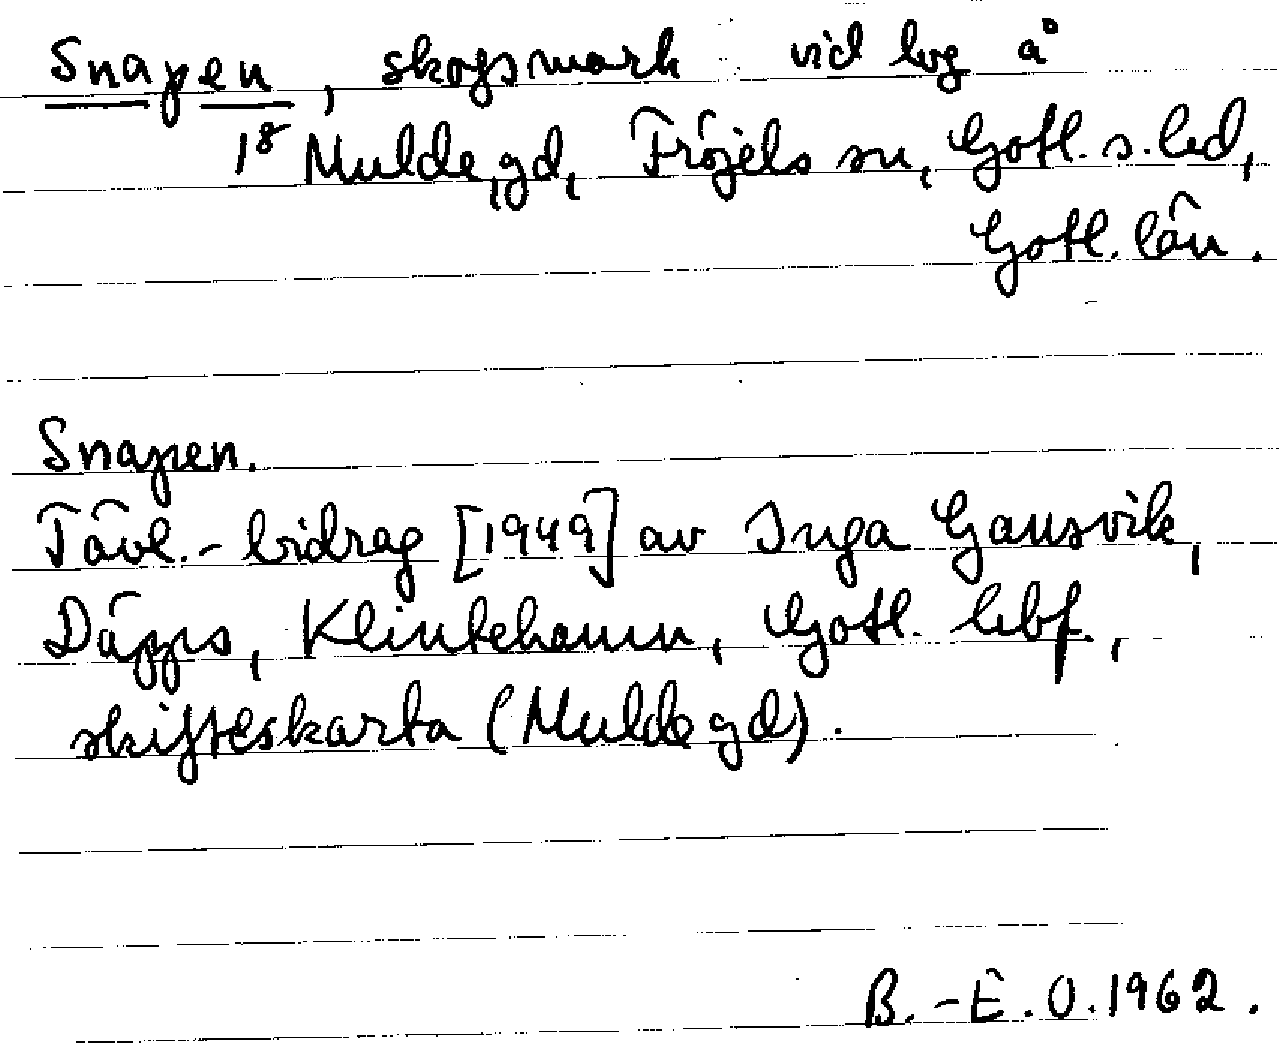 Snapen, skogsmark vid lvg å
1⁸ Mulde, gd, Fröjels sn, Gotl. s. hd,
Gotl. län.
Snapen.
Tävl.-bidrag [1949] av Inga Gansvik,
Däpps, Klintehamn, Gotl. hbf.,
skifteskarta (Mulde gd).
B.-E. O. 1962.